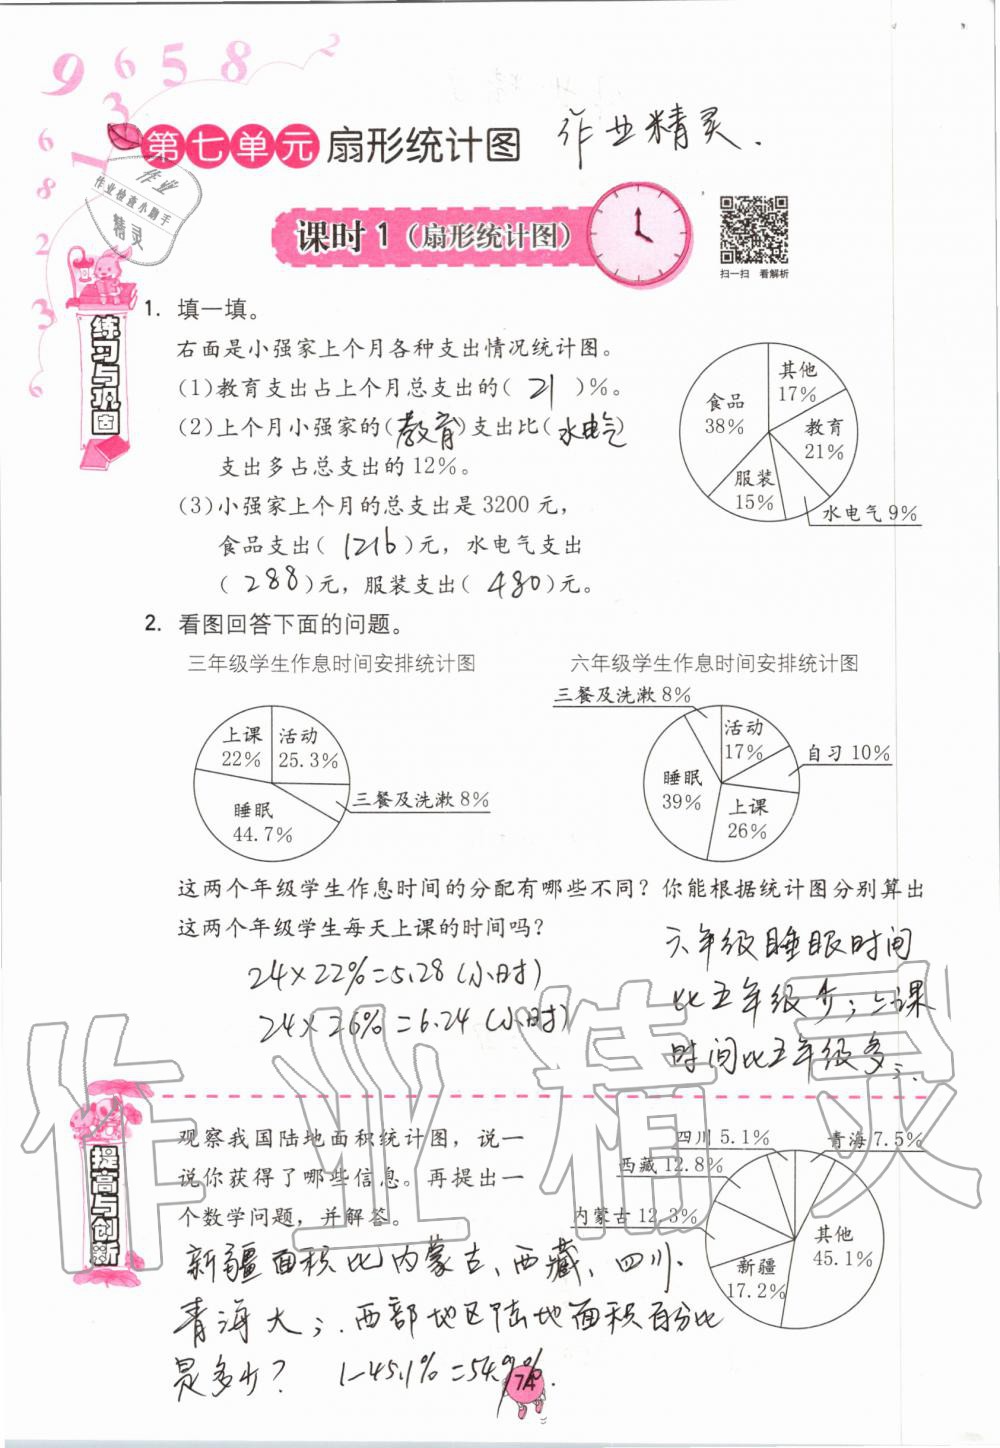 9 6 5 8 2
3
6 1
8
2
2
3
6
第七单元 扇形统计图 作业精灵.
作业
作业检查小助手
精灵
课时1(扇形统计图)
扫一扫 看解析
练习与巩固
1. 填一填。
右面是小强家上个月各种支出情况统计图。
(1)教育支出占上个月总支出的( 21 )%。
(2)上个月小强家的(教育)支出比(水电气)
支出多占总支出的12%。
(3)小强家上个月的总支出是3200元,
食品支出( 1216 )元,水电气支出
( 288 )元,服装支出( 480 )元。
其他
17%
食品
38%
教育
21%
服装
15%
水电气9%
2. 看图回答下面的问题。
三年级学生作息时间安排统计图
上课
22%
活动
25.3%
三餐及洗漱8%
睡眠
44.7%
六年级学生作息时间安排统计图
三餐及洗漱8%
活动
17%
自习10%
睡眠
39%
上课
26%
这两个年级学生作息时间的分配有哪些不同?你能根据统计图分别算出
这两个年级学生每天上课的时间吗?
24×22%=5.28(小时)
24×26%=6.24(小时)
六年级睡眠时间
比五年级少;上课
时间比五年级多;.
作业精灵
提高与创新
观察我国陆地面积统计图,说一
说你获得了哪些信息。再提出一
个数学问题,并解答。
四川5.1%
青海7.5%
西藏12.8%
内蒙古12.3%
其他
45.1%
新疆
17.2%
新疆面积比内蒙古、西藏、四川、
青海大;.西部地区陆地面积百分比
是多少? 1-45.1%=54.9%.
74